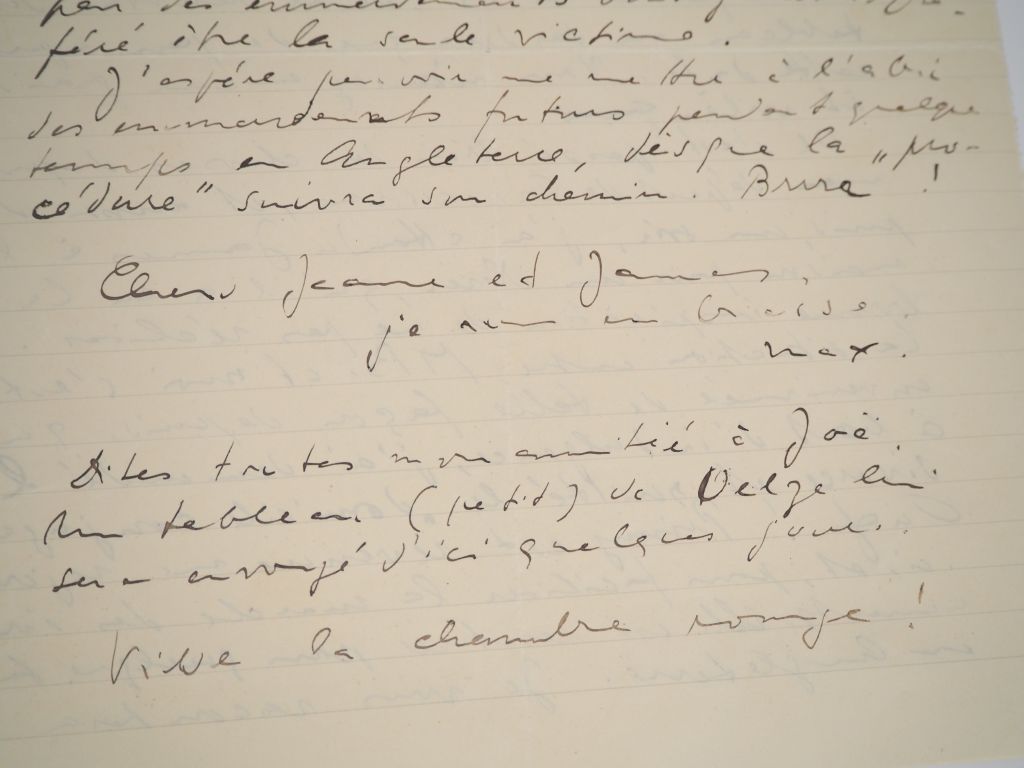 féré être la seule victime.
J'espére pouvoir me mettre à l'abri
des emmerdements futurs pendant quelque
temps en Angleterre, dèsque la „pro-
cédure" suivra son chémin. Brrr !
Chers Jeanne et James,
je vous embrasse
max.
Dites toutes mon amitié à Joë.
Un tableau (petit) de Oelze
sera envoyé d'ici quelques jours.
Vive la chambre rouge !